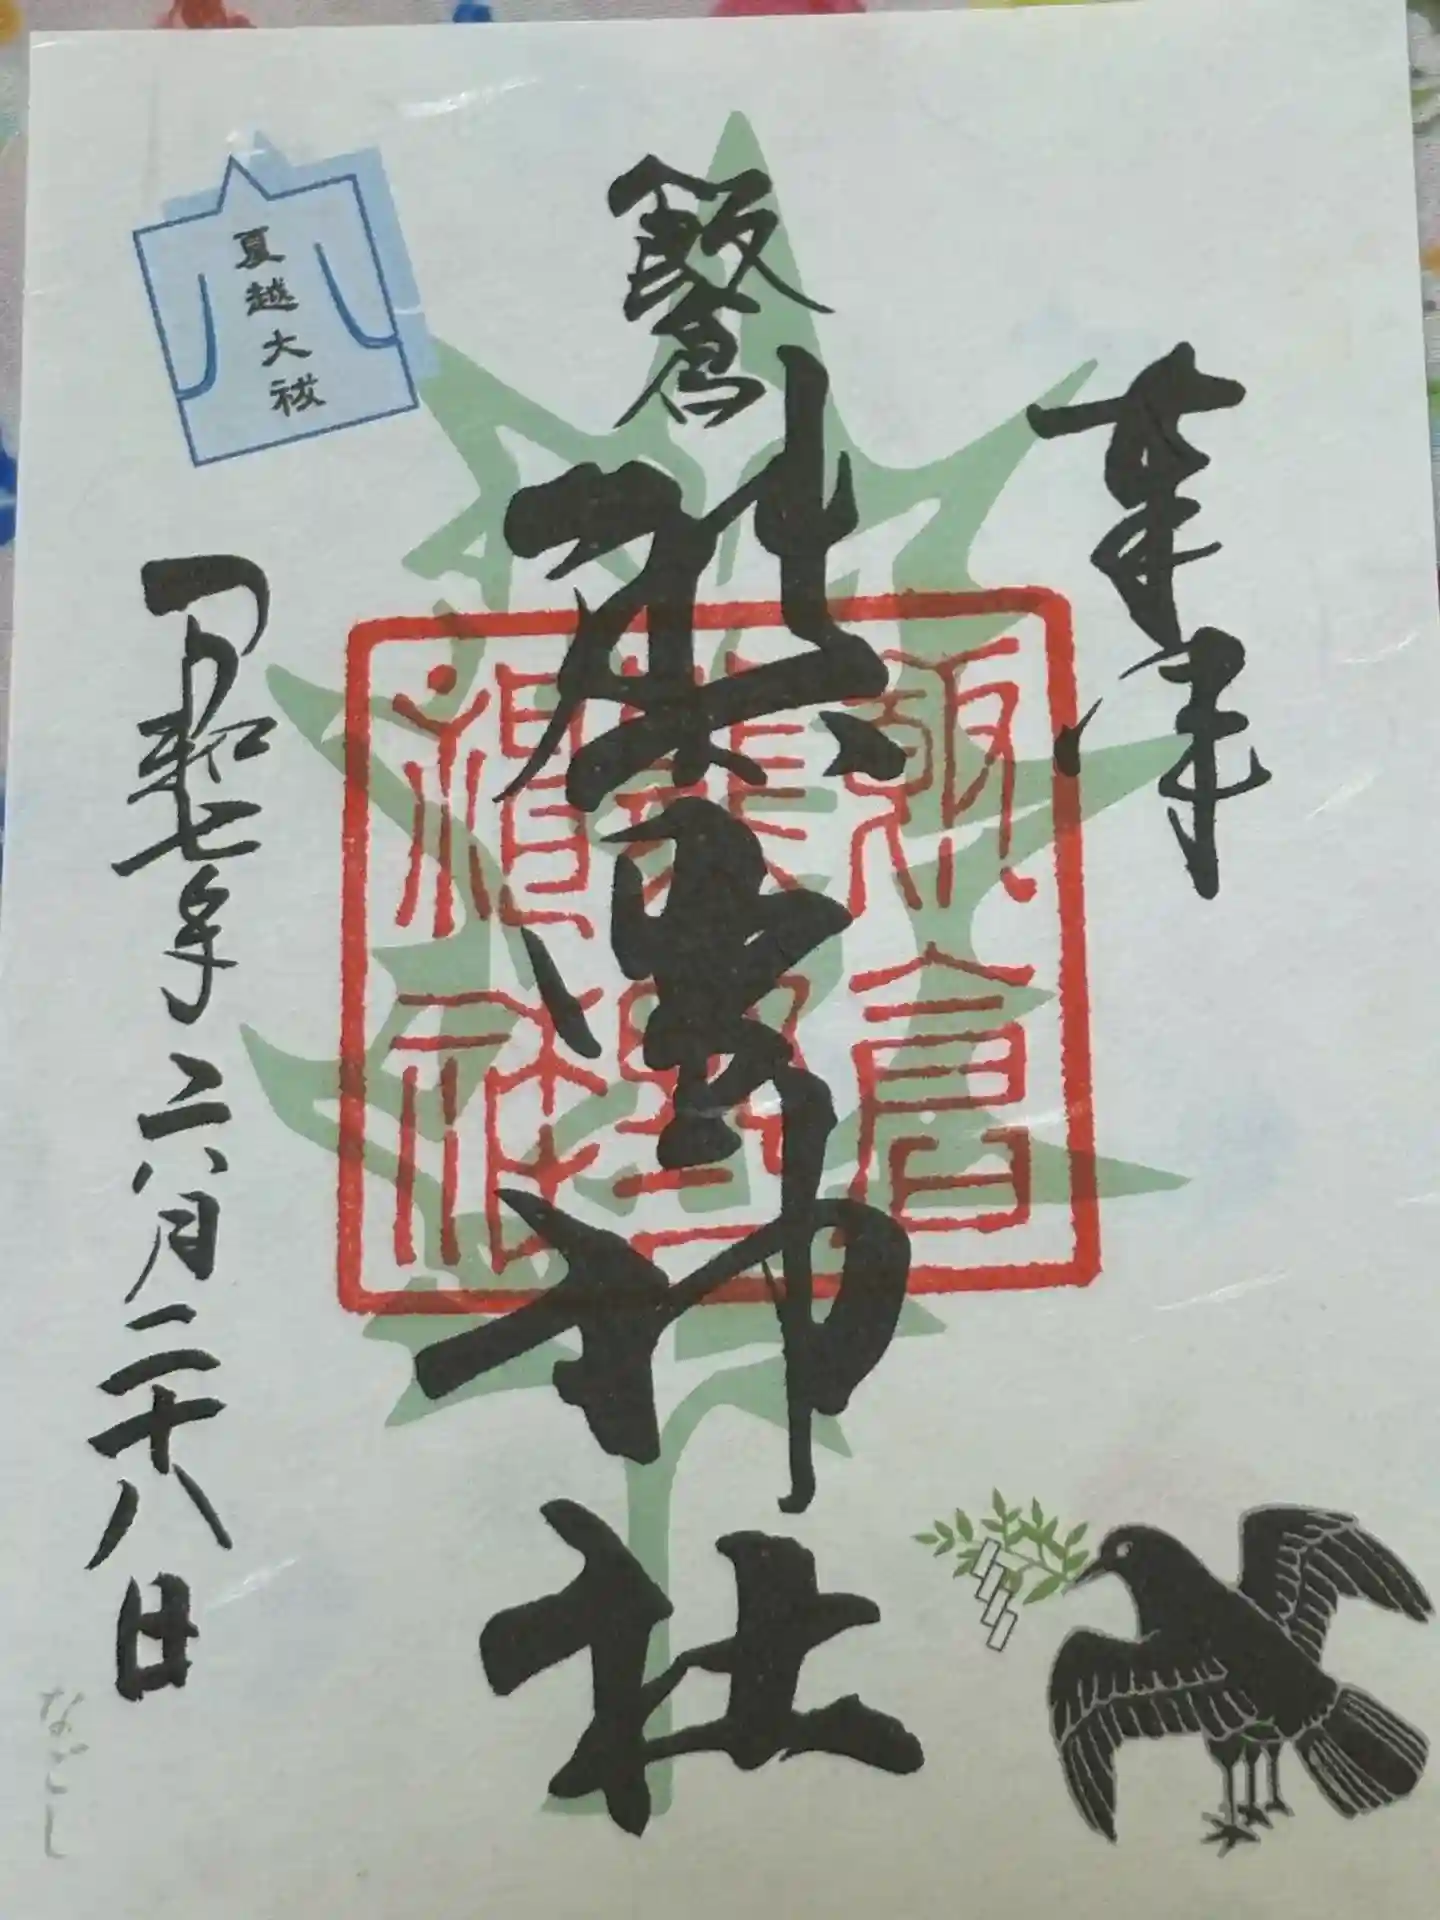 奉拝
飯倉
熊野神社
飯倉
熊野
神社
夏越大祓
令和七年六月二十八日
なごし